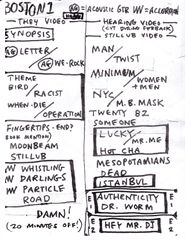 BOSTON 1
AG = ACOUSTIC GTR W = ACCORDION
— THEY VIDEO
SYNOPSIS
AG LETTER
AG WE-ROCK
THEME
BIRD / RACIST
WHEN-DIE / OPERATION
FINGERTIPS-END?
MOONBEAM
STILLUB
W WHISTLING
W DARLINGS-D
W PARTICLE
ROAD
DAMN!
(20 MINUTES OFF!)
HEARING VIDEO
(CUT DURING FEEDBACK)
STILLUB VIDEO
MAN / TWIST
MINIMUM / WOMEN + MEN
NYC / M.B. MASK
TWENTY 82
SOMEONE
LUCKY / MR. ME
HOT CHA
MESOPOTAMIANS
DEAD
ISTANBUL
E1 AUTHENTICITY E1
DR. WORM
E2 HEY MR. DJ E2